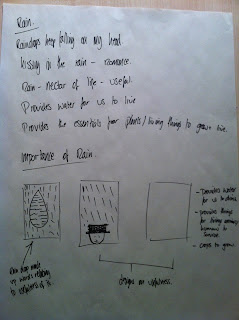 Rain.
Raindrops keep falling on my head.
kissing in the rain - romance.
Rain - nectar of life - useful.
Provides water for us to live
Provides the essentials for plants/living things to grow + live.
Importance of Rain.
- Provides water
for us to drink.
- provides things
for living animals/
humans to
survive.
- Crops to grow.
Rain drop made
up words relating
to usefulness of it.
designs on usefulness.